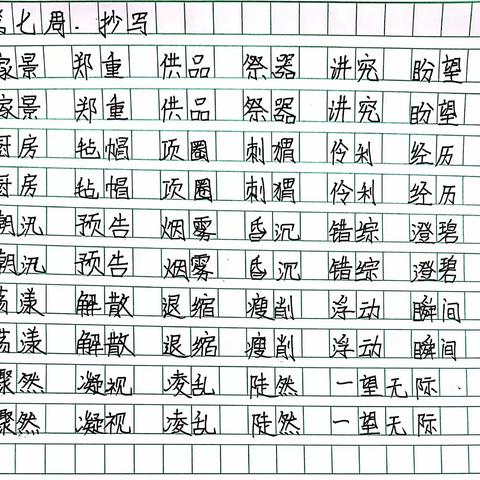 第七周.抄写
家景 郑重 供品 祭器 讲究 盼望
家景 郑重 供品 祭器 讲究 盼望
厨房 毡帽 项圈 刺猬 伶俐 经历
厨房 毡帽 项圈 刺猬 伶俐 经历
潮汛 预告 烟雾 昏沉 错综 澄碧
潮汛 预告 烟雾 昏沉 错综 澄碧
荡漾 解散 退缩 瘦削 浮动 瞬间
荡漾 解散 退缩 瘦削 浮动 瞬间
骤然 凝视 凌乱 陡然 一望无际
骤然 凝视 凌乱 陡然 一望无际